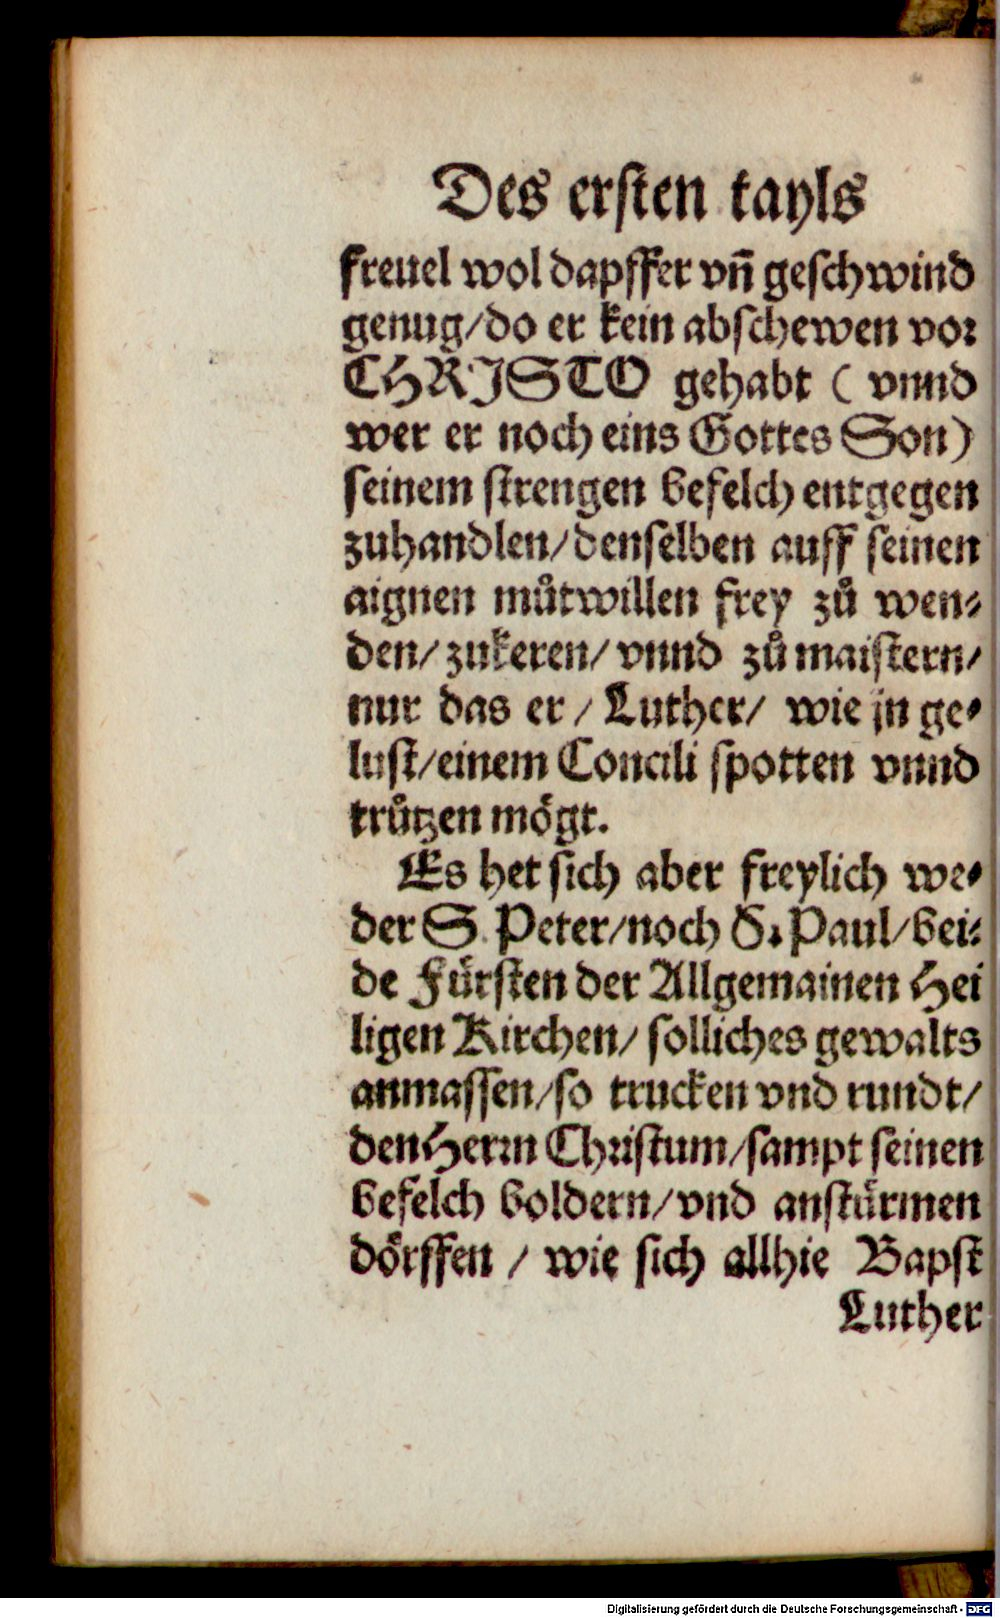 Des ersten tayls
freuel wol dapffer vn̄ geschwind
genug/do er kein abschewen vor
CHRISTO gehabt ( vnnd
wer er noch eins Gottes Son)
seinem strengen befelch entgegen
zuhandlen/denselben auff seinen
aignen můtwillen frey zů wen⸗
den/zukeren/vnnd zů maistern/
nur das er / Luther/ wie jn ge⸗
lust/einem Concili spotten vnnd
trůtzen mögt.
Es het sich aber freylich we⸗
der S. Peter/noch S. Paul/bei⸗
de Fürsten der Allgemainen Hei
ligen Kirchen/ solliches gewalts
anmassen/so trucken vnd rundt/
den Herrn Christum/sampt seinen
befelch boldern/vnd anstürmen
dörffen / wie sich allhie Bapst
Luther
Digitalisierung gefördert durch die Deutsche Forschungsgemeinschaft - DFG